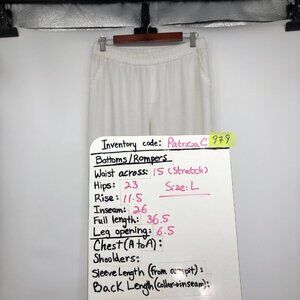 Inventory code: Patricia C 979
Bottoms/Rompers
Waist across: 15 (Stretch)
Hips: 23
Size: L
Rise: 11.5
Inseam: 26
Full length: 36.5
Leg opening: 6.5
Chest (A to A):
Shoulders:
Sleeve Length (from armpit):
Back Length (collar→inseam):